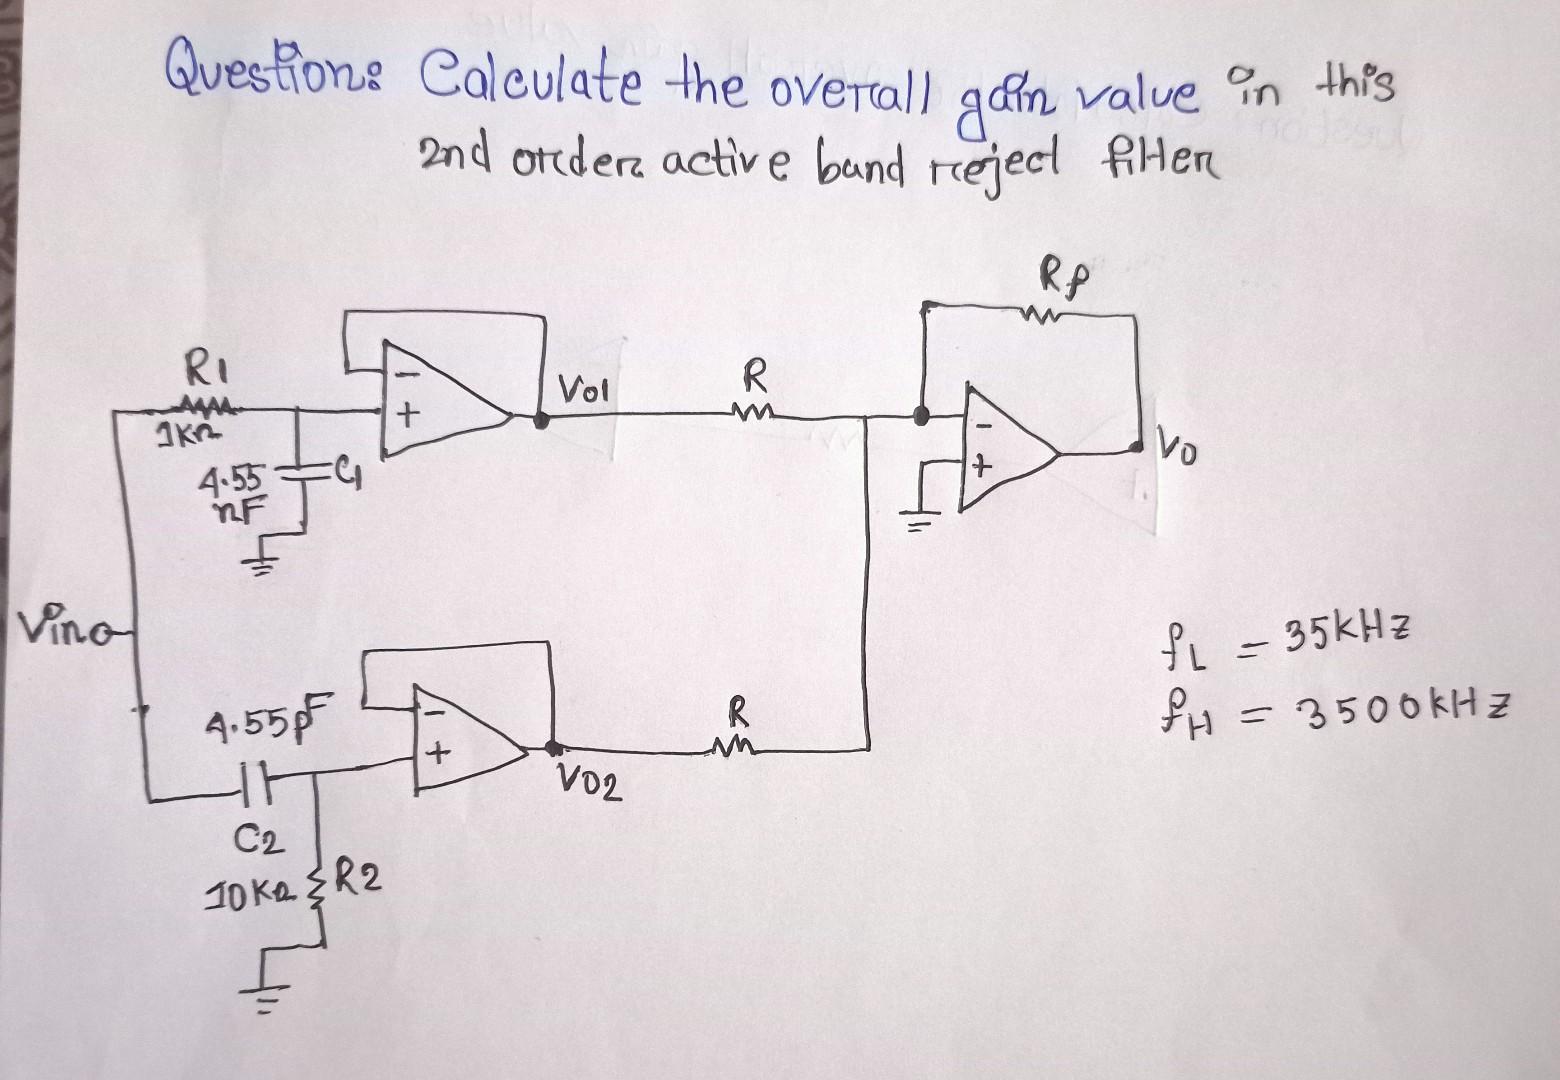 Question: Calculate the overall gain value in this
2nd order active band reject filter
Rf
R1
1kΩ
4.55
nF
C1
-
+
Vo1
R
-
+
Vo
Vin
fL = 35kHz
fH = 3500kHz
4.55pF
C2
10kΩ
R2
-
+
Vo2
R